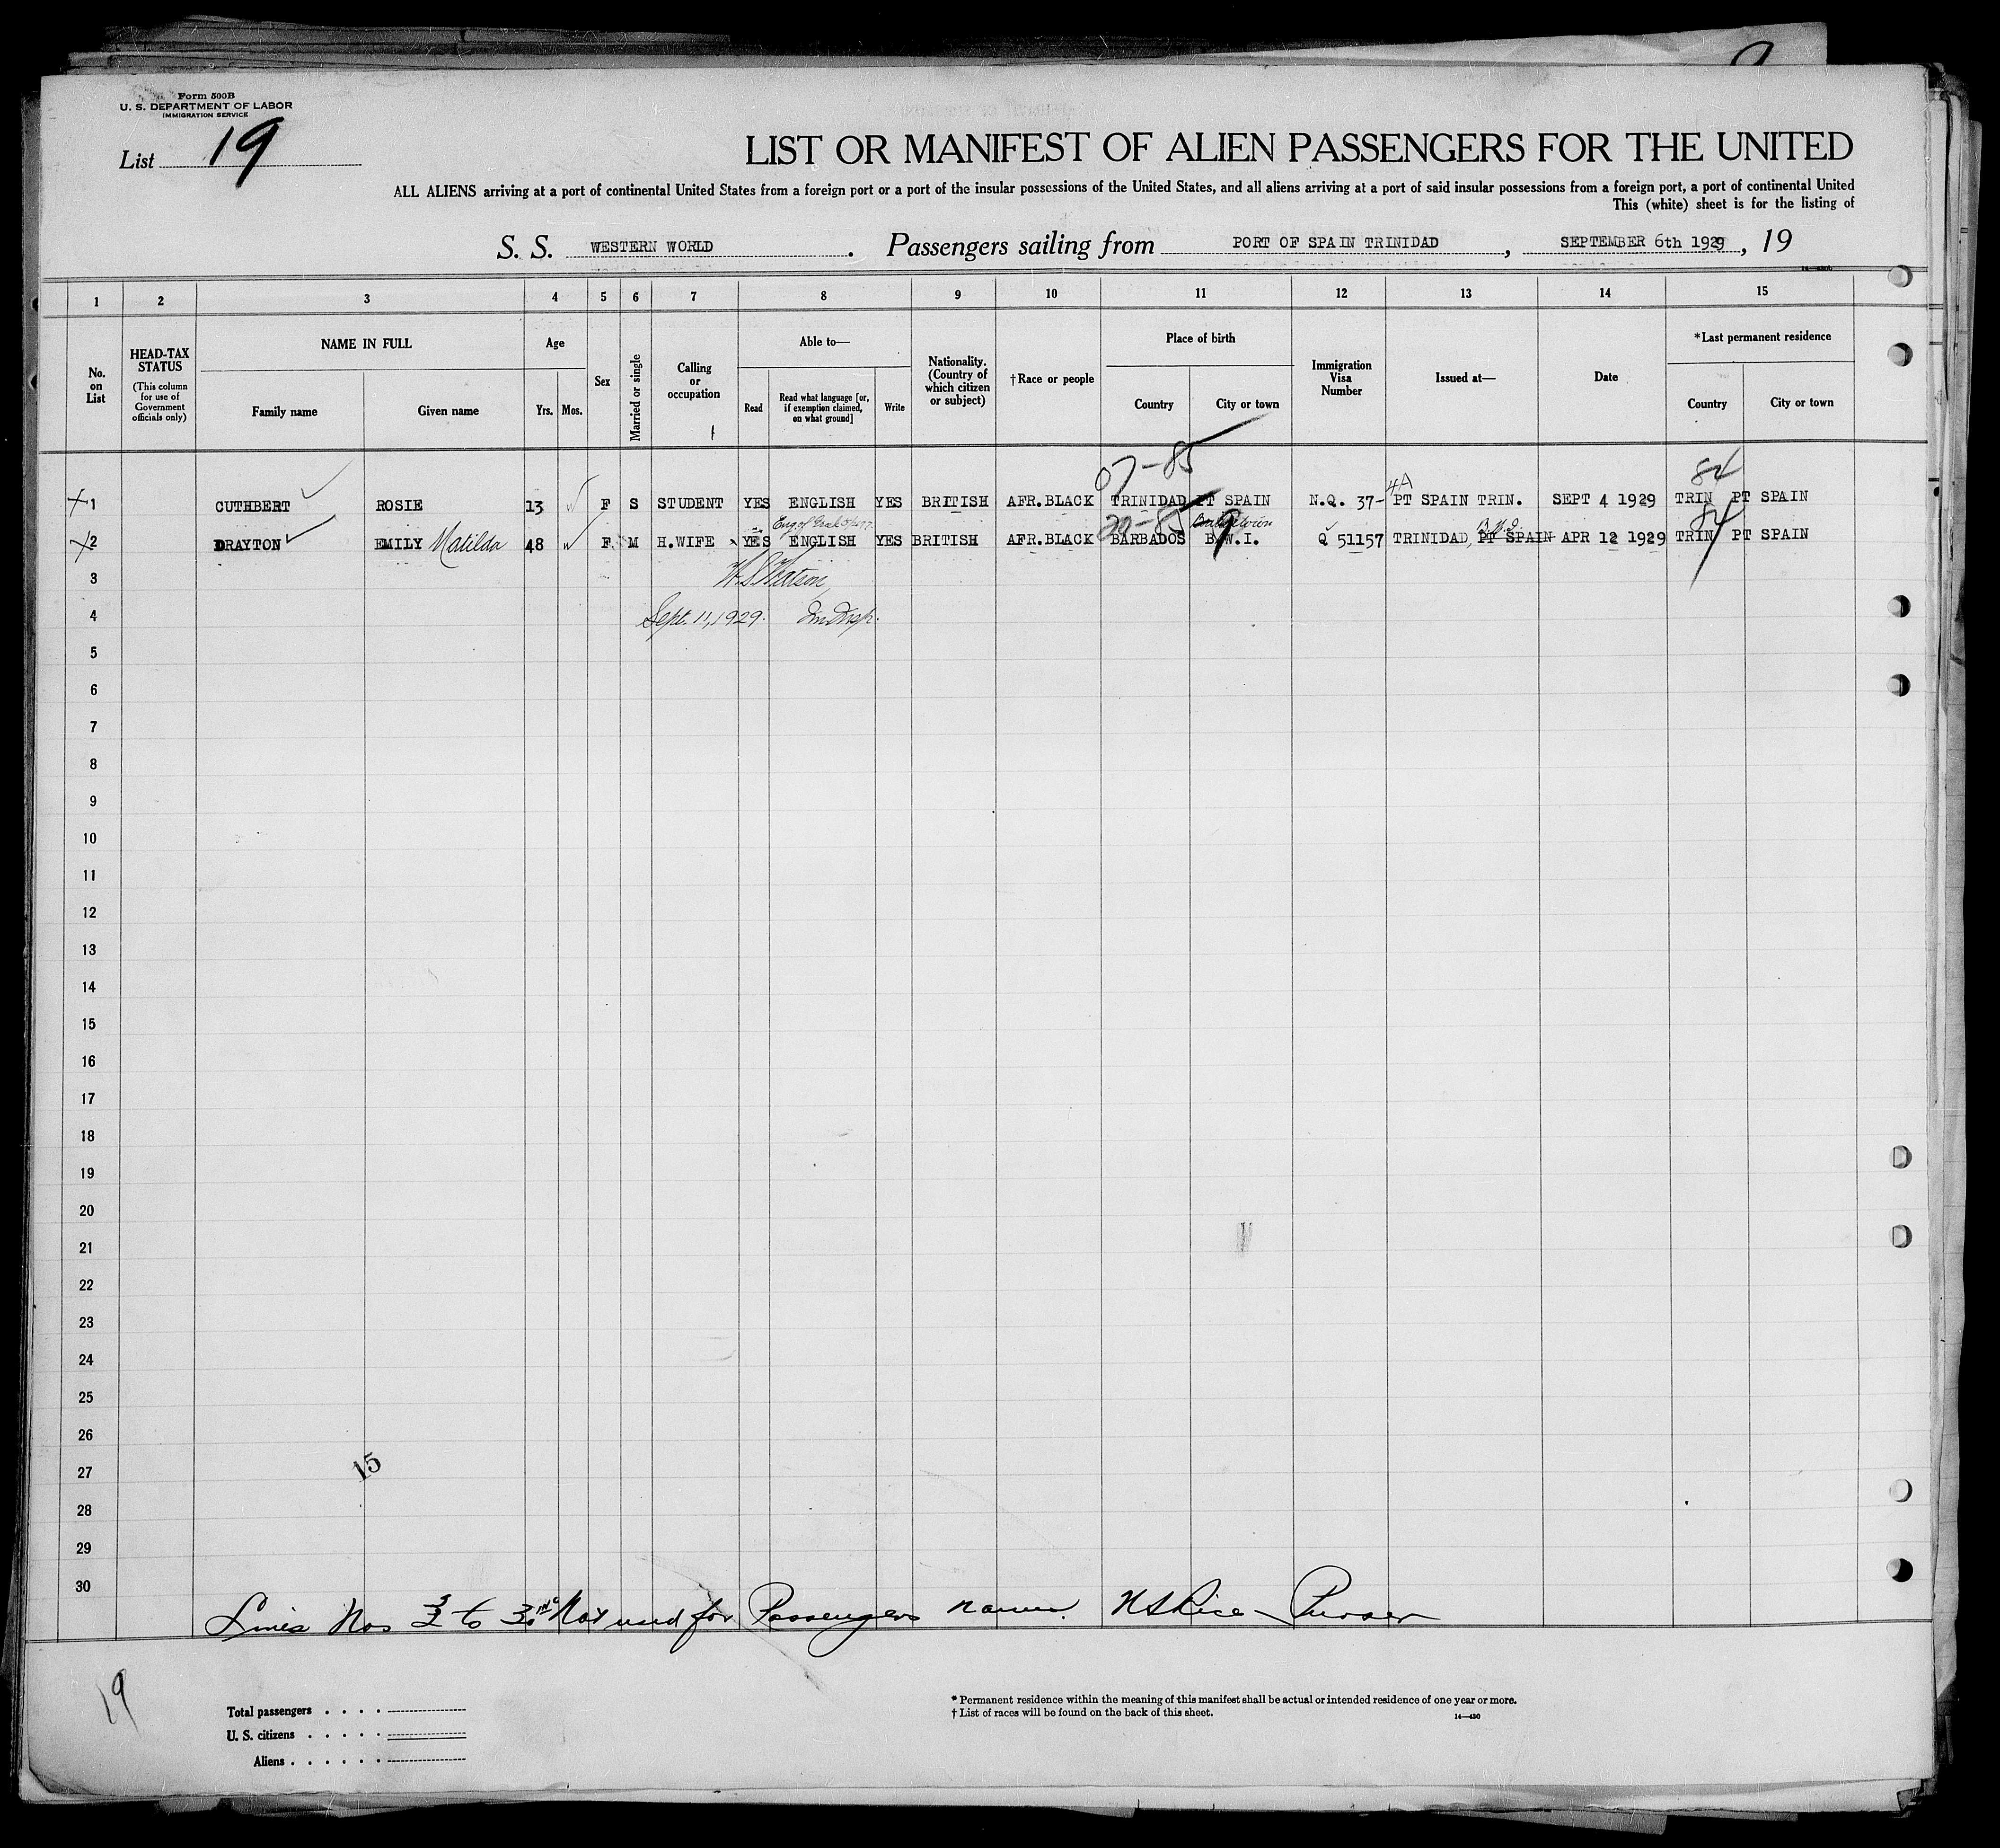 Form 500B
U. S. DEPARTMENT OF LABOR
IMMIGRATION SERVICE
List 19
LIST OR MANIFEST OF ALIEN PASSENGERS FOR THE UNITED
ALL ALIENS arriving at a port of continental United States from a foreign port or a port of the insular possessions of the United States, and all aliens arriving at a port of said insular possessions from a foreign port, a port of continental United
This (white) sheet is for the listing of
S. S. WESTERN WORLD . Passengers sailing from PORT OF SPAIN TRINIDAD , SEPTEMBER 6th 1929 , 19
1 2 3 4 5 6 7 8 9 10 11 12 13 14 15
No. on List
HEAD-TAX STATUS (This column for use of Government officials only)
NAME IN FULL
Family name Given name
Age
Yrs. Mos.
Sex
Married or single
Calling or occupation
Able to—
Read
Read what language [or, if exemption claimed, on what ground]
Write
Nationality. (Country of which citizen or subject)
†Race or people
Place of birth
Country City or town
Immigration Visa Number
Issued at—
Date
*Last permanent residence
Country City or town
07-85 84
4A
1 CUTHBERT ROSIE 13 F S STUDENT YES ENGLISH YES BRITISH AFR.BLACK TRINIDAD PT SPAIN N.Q. 37- PT SPAIN TRIN. SEPT 4 1929 TRIN PT SPAIN
20-85 84
2 DRAYTON EMILY Matilda 48 F M H.WIFE YES ENGLISH YES BRITISH AFR.BLACK BARBADOS B.W.I. Q 51157 TRINIDAD, PT SPAIN APR 12 1929 TRIN PT SPAIN
3 W S Watson
4 Sept. 11, 1929. Im Insp.
5
6
7
8
9
10
11
12
13
14
15
16
17
18
19
20
21
22
23
24
25
26
27
15
28
29
30
Lines Nos 3 to 30 inc Not used for Passengers names. Purser
19
Total passengers
U. S. citizens
Aliens
* Permanent residence within the meaning of this manifest shall be actual or intended residence of one year or more.
† List of races will be found on the back of this sheet.
14—430